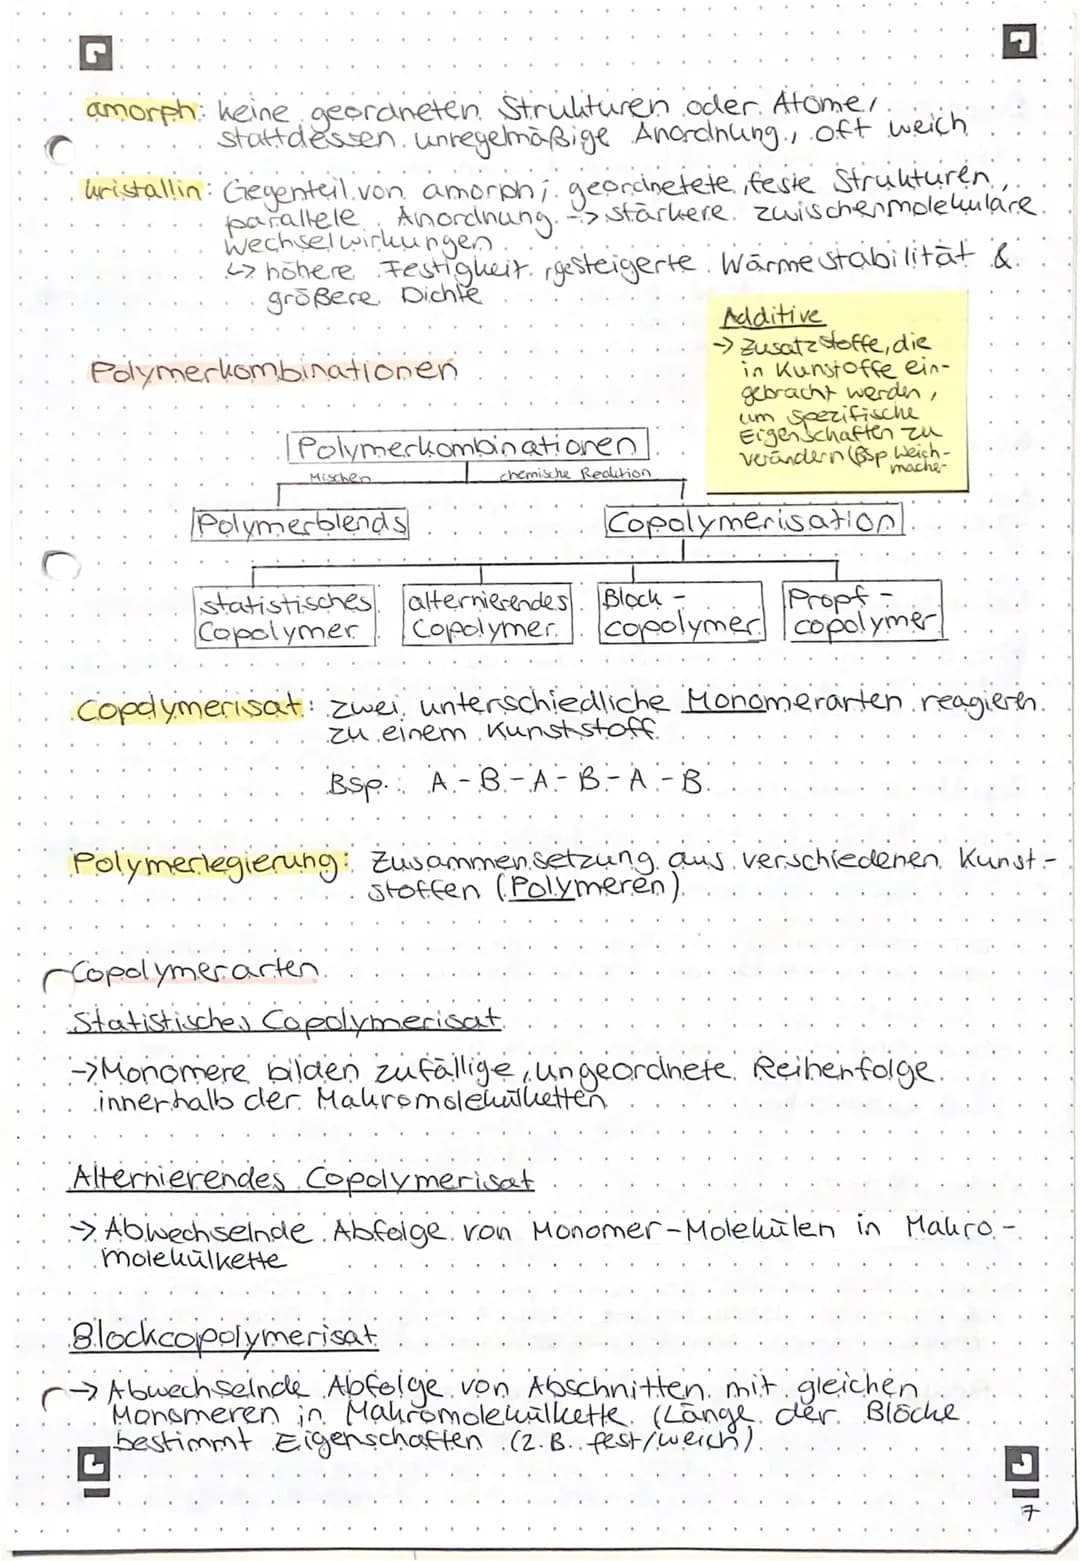 amorph: keine geordneten Strukturen oder Atome,
stattdessen unregelmäßige Anordnung, oft weich
kristallin: Gegenteil von amorph; geordnetete, feste Strukturen,
parallele Anordnung -> stärkere zwischenmolekulare
Wechselwirkungen
↳ höhere Festigkeit, gesteigerte Wärmestabilität &
größere Dichte
Additive
→ Zusatzstoffe, die
in Kunstoffe ein-
gebracht werden,
um spezifische
Eigenschaften zu
verändern (Bsp Weich-
macher
Polymerkombinationen
Polymerkombinationen
Mischen chemische Reaktion
Polymerblends Copolymerisation
statistisches alternierendes Block- Propf-
Copolymer Copolymer copolymer copolymer
Copolymerisat: zwei unterschiedliche Monomerarten reagieren
zu einem Kunststoff.
Bsp.: A-B-A-B-A-B
Polymerlegierung: Zusammensetzung aus verschiedenen Kunst-
stoffen (Polymeren)
Copolymerarten
Statistisches Copolymerisat
→ Monomere bilden zufällige, ungeordnete Reihenfolge
innerhalb der Makromolekülketten
Alternierendes Copolymerisat
→ Abwechselnde Abfolge von Monomer-Molekülen in Makro-
molekülkette
Blockcopolymerisat
→ Abwechselnde Abfolge von Abschnitten mit gleichen
Monomeren in Makromolekülkette (Länge der Blöcke
bestimmt Eigenschaften (z.B. fest/weich)
7